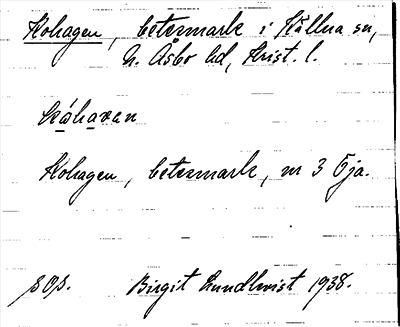 Kohagen, betesmark i Källna sn,
N. Åsbo hd, Krist. l.
Kohagen, betesmark, nr 3 Öja.
SOS. Birgit Lundkvist 1938.